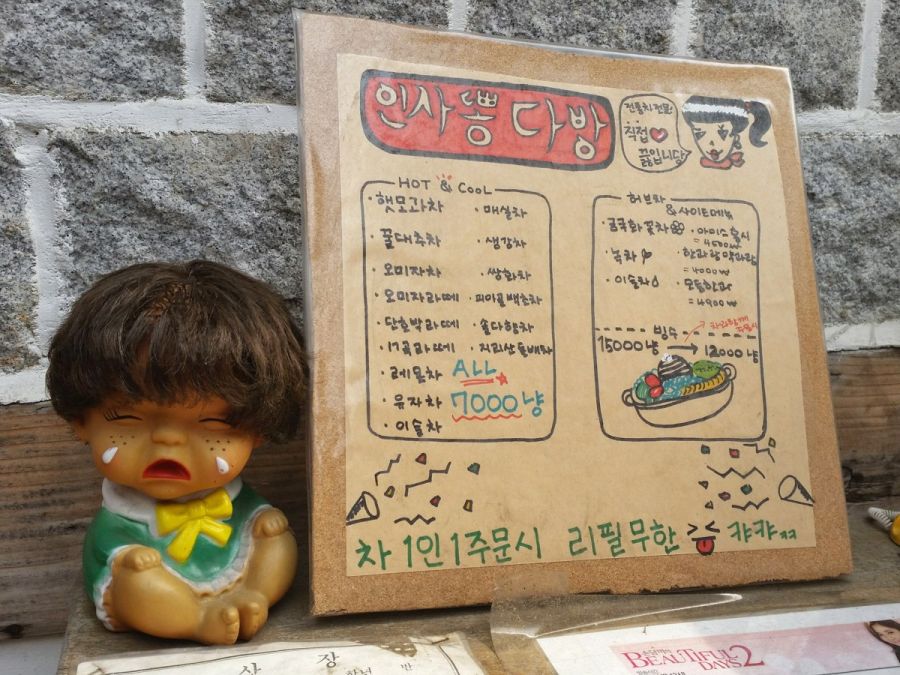 인사똥다방
전통차전문
직접
끓입니당
HOT & COOL
·햇모과차 ·매실차
·꿀대추차 ·생강차
·오미자차 ·쌍화차
·오미자라떼
·단호박라떼 ·솔다향차
·17곡라떼 ·지리산돌배차
·레몬차
·유자차
·이슬차
ALL
7000냥
허브차
&사이드메뉴
·궁국화꽃차 ·아이스홍시
=4500₩
·녹차 한과랑약과랑
=4000₩
·이슬차 ·모듬한과
=4900₩
빙수
15000냥 → 12000냥
차 1인1주문시 리필무한 캬캬ㅋㅋ
상 장
BEAUTIFUL
DAYS 2